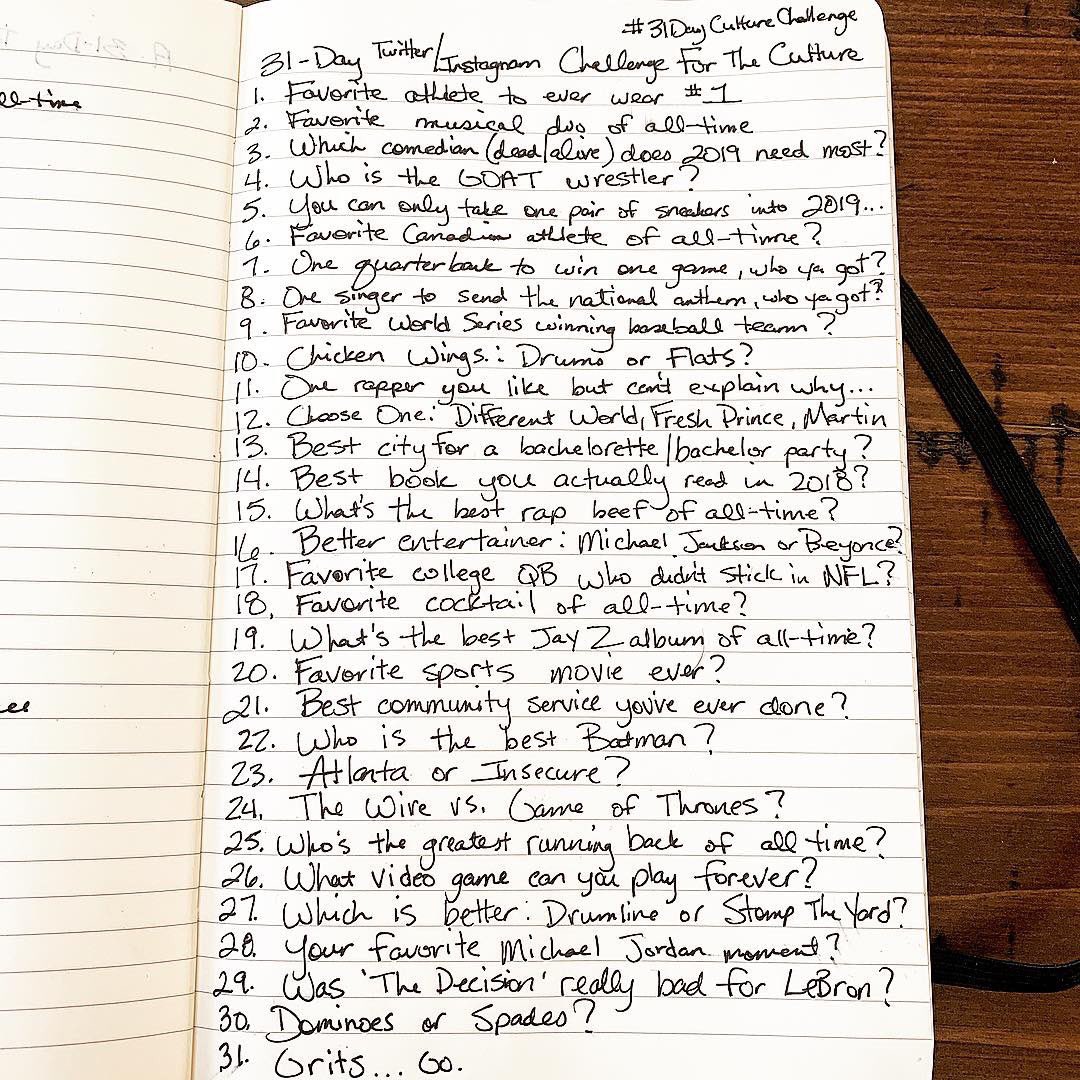 #31DayCultureChallenge
31-Day Twitter/Instagram Challenge For The Culture
all-time
1. Favorite athlete to ever wear #1
2. Favorite musical duo of all-time
3. Which comedian (dead/alive) does 2019 need most?
4. Who is the GOAT wrestler?
5. You can only take one pair of sneakers into 2019...
6. Favorite Canadian athlete of all-time?
7. One quarterback to win one game, who ya got?
8. One singer to send the national anthem, who ya got?
9. Favorite World Series winning baseball team?
10. Chicken Wings: Drums or Flats?
11. One rapper you like but can't explain why...
12. Choose One: Different World, Fresh Prince, Martin
13. Best city for a bachelorette/bachelor party?
14. Best book you actually read in 2018?
15. What's the best rap beef of all-time?
16. Better entertainer: Michael Jackson or Beyonce?
17. Favorite college QB who didn't stick in NFL?
18. Favorite cocktail of all-time?
19. What's the best Jay Z album of all-time?
20. Favorite sports movie ever?
21. Best community service you've ever done?
22. Who is the best Batman?
23. Atlanta or Insecure?
24. The Wire vs. Game of Thrones?
25. Who's the greatest running back of all time?
26. What video game can you play forever?
27. Which is better: Drumline or Stomp The Yard?
28. Your favorite Michael Jordan moment?
29. Was 'The Decision' really bad for LeBron?
30. Dominoes or Spades?
31. Grits... Go.